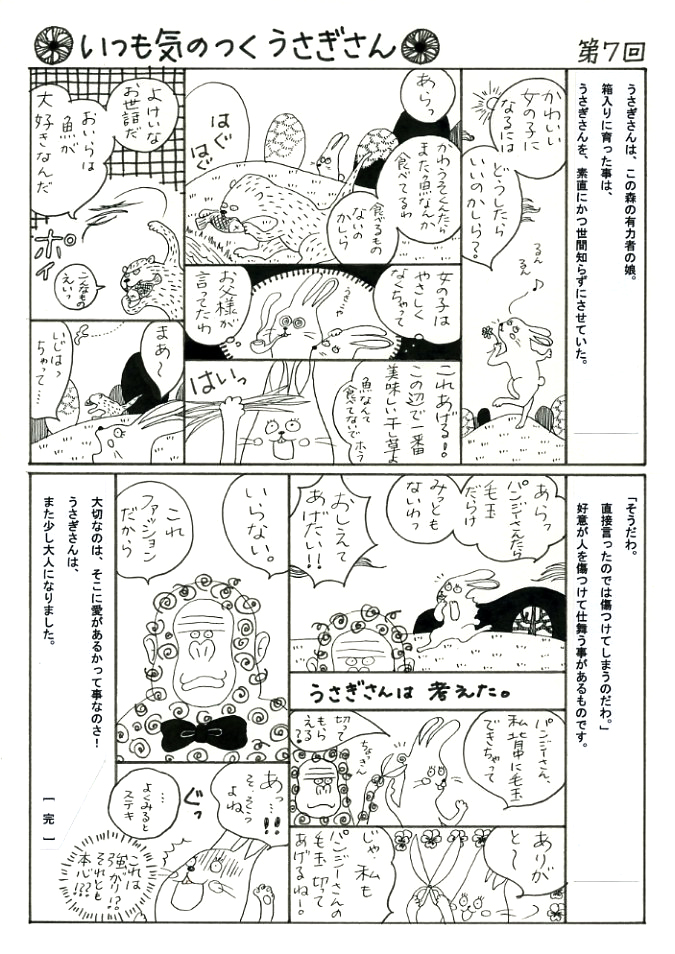 いつも気のつくうさぎさん
第7回
うさぎさんは、この森の有力者の娘。
箱入りに育った事は、
うさぎさんを、素直にかつ世間知らずにさせていた。
かわいい
女の子に
なるには
どうしたら
いいのかしら?
るん
るん
♪
あらっ
かわうそくんたら
また魚なんか
食べてるわ
食べるもの
ないの
かしら
はぐ
はぐ
女の子は
やさしく
なくちゃって
うさぎや
お父様が
言ってたわ
これあげる!!
この辺で一番
美味しい干草よ
魚なんて
食べてないで ホラ
はいっ
よけいな
お世話だ
おいらは
魚が
大好きなんだ
ポイ
こんなもの
えいっ
まあ〜
いじはっ
ちゃって…
「そうだわ。
直接言ったのでは傷つけてしまうのだわ。」
好意が人を傷つけて仕舞う事があるものです。
あらっ
パンジーさんたら
毛玉
だらけ
みっとも
ないわっ
おしえて
あげたい!!
うさぎさんは 考えた。
パンジーさん、
私背中に毛玉
できちゃって
切って
もら
える
?
ちょっきん
ありが
と〜
じゃ、私も
パンジーさんの
毛玉切って
あげるねー!
いらない。
これ
ファッション
だから
あっ…!!
そ、そうっ
よね
ぐっ
…
よくみると
ステキ
これは
強がり!?
それとも
本心!??
大切なのは、そこに愛があるかって事なのさ!
うさぎさんは、
また少し大人になりました。
[完]